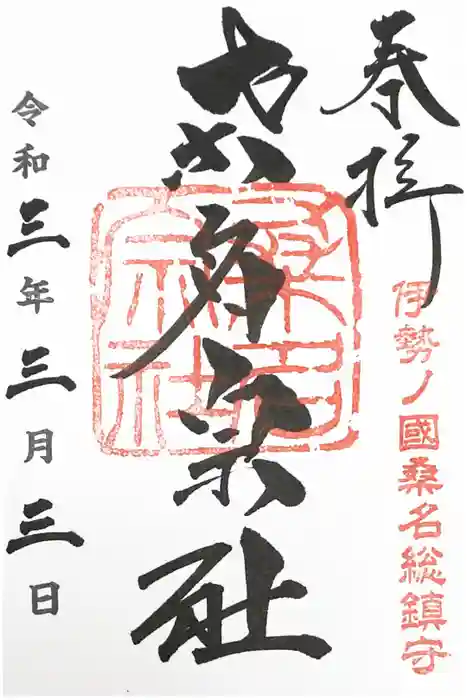 奉拝
伊勢ノ國桑名総鎮守
桑名宗社
令和三年三月三日